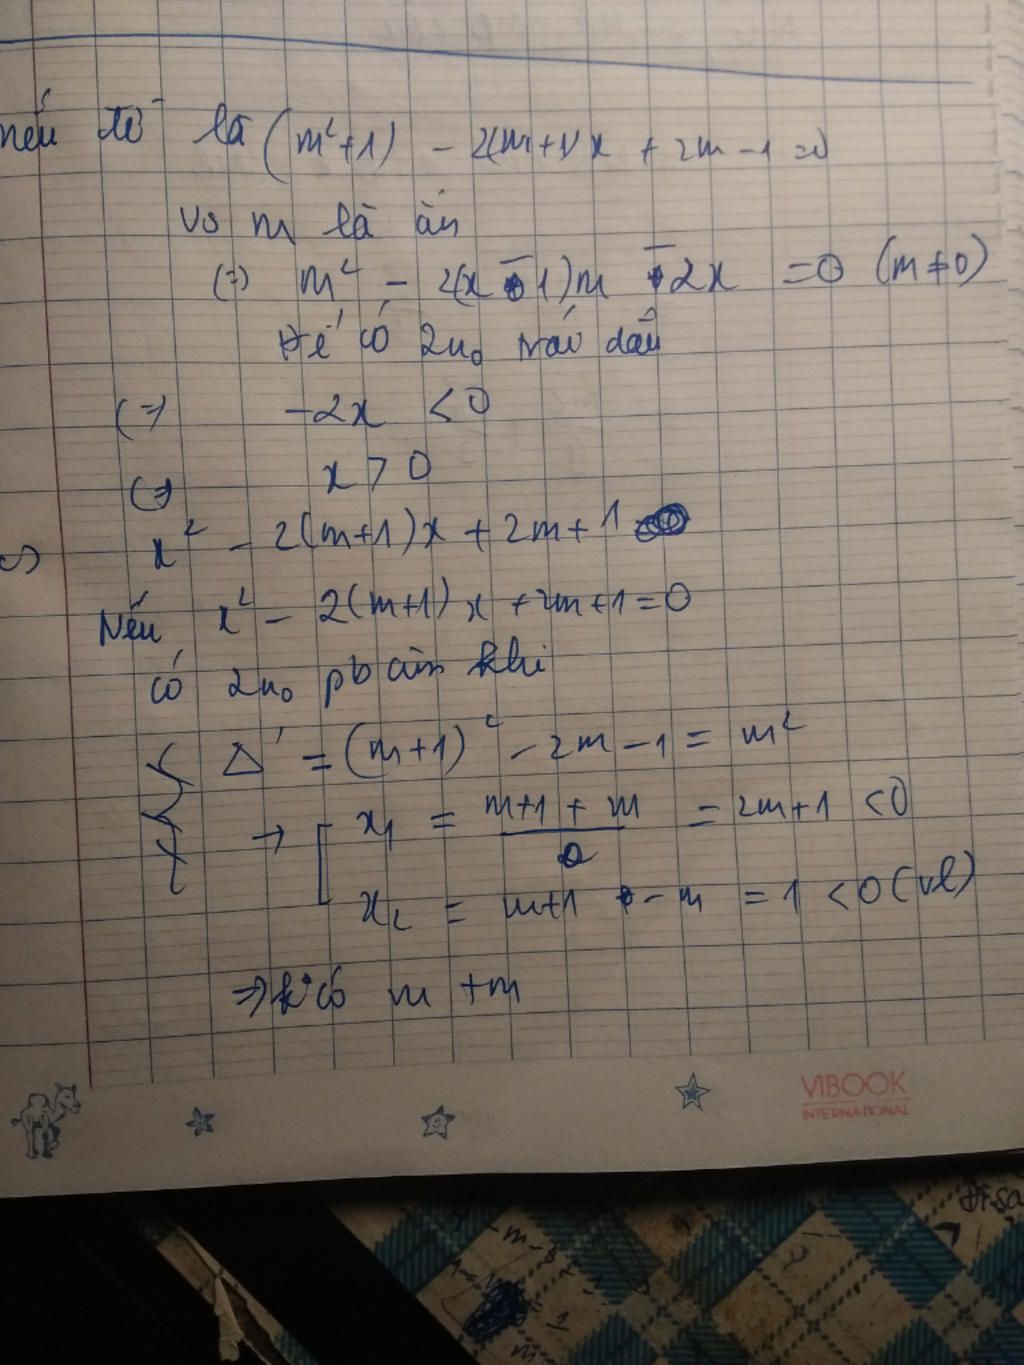 nếu đề là (m²+1) - 2(m+1)x + 2m-1=0
vs m là ẩn
(=) m² - 2(x-1)m - 2x = 0 (m≠0)
Để có 2n₀ trái dấu
(=) -2x < 0
(=) x > 0
c) x² - 2(m+1)x + 2m+1
Nếu x² - 2(m+1)x + 2m+1=0
có 2n₀ pb âm khi
Δ' = (m+1)² - 2m - 1 = m²
→ x₁ = m+1 + m = 2m+1 < 0
x₂ = m+1 - m = 1 < 0 (vl)
=> k° có m +m
VIBOOK
INTERNATIONAL